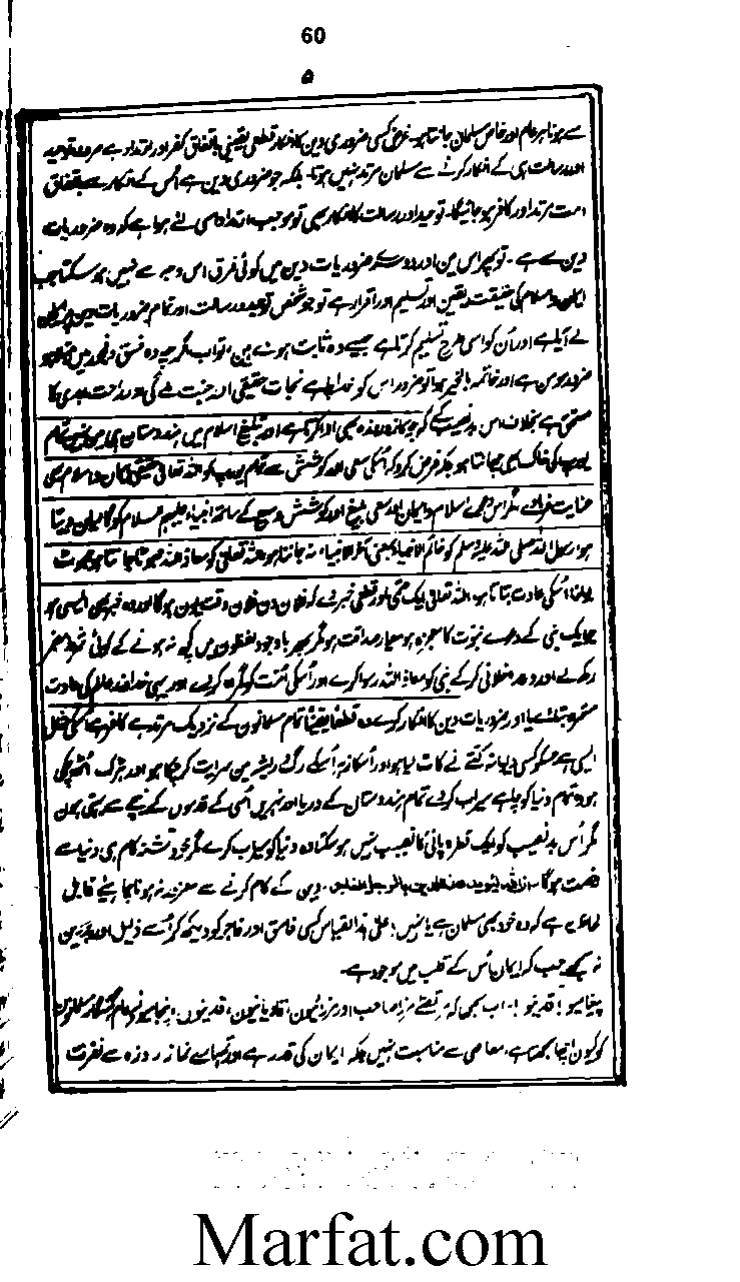 60
۵
سے ہونا ہر عام اور خاص مسلمان جانتا ہو۔ غرض کسی ضروری دین کا انکار قطعی یقینی باتفاق کفر اور ارتداد ہے صرف توحید
اور رسالت ہی کے انکار کرنے سے مسلمان مرتد نہیں ہوتا۔ بلکہ جو ضروری دین ہے اُس کے انکار سے باتفاق
امت مرتد اور کافر ہو جائیگا۔ توحید اور رسالت کا انکار بھی تو موجب ارتداد اسی لئے ہوا ہے کہ وہ ضروریات
دین سے ہے۔ تو پھر اس میں اور دوسرے ضروریات دین میں کوئی فرق اس وجہ سے نہیں ہو سکتا جب
ایمان و اسلام کی حقیقت یقین اور تسلیم اور اقرار ہے تو جو شخص توحید و رسالت اور تمام ضروریات دین پر ایمان
لے آیا ہے اور اُن کو اسی طرح تسلیم کرتا ہے جیسے وہ ثابت ہوئے ہیں، تو اب اگرچہ وہ فسق و فجور میں
ضرور مومن ہے اور خاتمہ بالخیر ہوا تو ضرور اس کو نجات حقیقی اور جنت ملے گی اور راحت ابدی کا
مستحق ہے بخلاف اس بدنصیب کے کہ جو نماز روزہ بھی ادا کرتا ہے اور تبلیغ اسلام میں ہندوستان ہی میں نہیں تمام
یورپ کی خاک بھی چھانتا ہو بلکہ فرض کرو کہ اُسکی سعی اور کوشش سے تمام یورپ کو اللہ تعالیٰ حقیقی ایمان و اسلام بھی
عنایت فرمادے مگر اس دعوے اسلام و ایمان اور سعی بلیغ اور کوشش وسیع کے ساتھ انبیاء علیہم السلام کو گالیاں دیتا
ہو اور رسول اللہ صلی اللہ علیہ وسلم کو خاتم الانبیاء بمعنی آخر الانبیاء نہ جانتا ہو اللہ تعالیٰ کو معاذ اللہ جھوٹا جانتا ہو جھوٹ
بولنا اُسکی عادت بتاتا ہو، اللہ تعالیٰ ایک حتمی اور قطعی خبر دے کہ فلاں دن فلاں وقت یوں ہوگا اور وہ خبر بھی ایسی ہو
جو ایک نبی کے دعوے نبوت کا معجزہ ہو معیار صداقت ہو مگر پھر باوجود لفظوں میں کچھ نہ ہونے کے کوئی شرط مضمر
رکھ لے اور وعدہ خلافی کر کے نبی کو معاذ اللہ رسوا کرے اور اُسکی اُمت کو گمراہ کرے اور یہی خداوند عالم کی عادت
مستمرہ بتلائے یا اور ضروریات دین کا انکار کرے وہ قطعاً یقیناً تمام مسلمانوں کے نزدیک مرتد ہے کافر ہے اُسکی مثل
ایسی ہے جسکو کسی دیوانہ کتے نے کاٹ لیا ہو اور اُسکا زہر اُسکے رگ و ریشہ میں سرایت کر چکا ہو اور ہڑک اُٹھ چکی
ہو وہ تمام دنیا کو چاہے سیراب کر دے تمام ہندوستان کے دریا اور نہریں اُسی کے قدموں کے نیچے سے بہتی ہوں
مگر اُس بدنصیب کو ایک قطرہ پانی کا نصیب نہیں ہو سکتا وہ دنیا کو سیراب کرے مگر خود تشنہ کام ہی دنیا سے
رخصت ہوگا دین کے کام کرنے سے مغرور نہ ہونا چاہئے قابل
لحاظ یہ ہے کہ وہ خود بھی مسلمان ہے یا نہیں! علیٰ ہذا القیاس کسی فاسق اور فاجر کو دیکھ کر اُسے ذلیل اور بے دین
نہ سمجھے جب کہ ایمان اُس کے قلب میں موجود ہے۔
پیغامیو! قدنیو!۔ اب بھی کہ مرزا صاحب اور مرزائیوں، قادیانیوں، قدنیوں، پیغامیوں
کو کیوں اچھا سمجھتا ہے، معاصی سے مناسبت نہیں بلکہ ایمان کی قدر ہے اور تمہارے نماز روزہ سے نفرت
Marfat.com